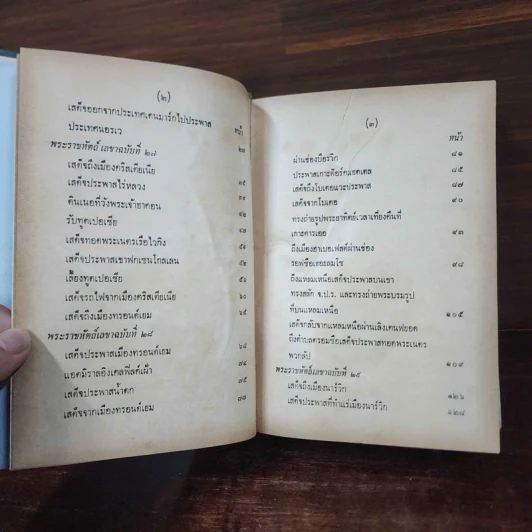 (๒)
เสด็จออกจากประเทศเดนมาร์กไปประพาส
ประเทศนอรเว หน้า
พระราชหัตถ์เลขาฉบับที่ ๒๗
เสด็จถึงเมืองคริสเตียเนีย
เสด็จประพาสไร่หลวง ๔๕
ดินเนอที่วังพระเจ้าฮาคอน
รับทูตเปอเซีย
เสด็จทอดพระเนตรเรือไวกิง
เสด็จประพาสเขาฟกเซนโกลเลน
เลี้ยงทูตเปอเซีย
เสด็จรถไฟจากเมืองคริสเตียเนีย ๖๐
เสด็จถึงเมืองทรอนด์เยม ๖๕
พระราชหัตถ์เลขาฉบับที่ ๒๘
เสด็จประพาสเมืองทรอนด์เยม ๖๘
แอดมิราลอิงเคลฟิลด์เฝ้า
เสด็จประพาสน้ำตก ๗๕
เสด็จจากเมืองทรอนด์เยม
(๓)
หน้า
ผ่านช่องบือรวิก ๘๑
ประพาสเกาะคือร์คแอดเดล ๘๕
เสด็จถึงโบเดอแวะประพาส ๘๗
เสด็จจากโบเดอ ๙๐
ทรงถ่ายรูปพระอาทิตย์เวลาเที่ยงคืนที่
เกาะคารเออ ๙๓
ถึงเมืองฮาเบอเฟสต์ผ่านช่อง
๙๘
ถึงแหลมเหนือเสด็จประพาสบนเขา
ทรงสลัก จ.ป.ร. และทรงถ่ายพระบรมรูป
ที่บนแหลมเหนือ ๑๐๕
เสด็จกลับจากแหลมเหนือผ่านเลิงเดนฟยอด
ถึงตำบลครอมช้อเสด็จประพาสทอดพระเนตร
พวกลัป ๑๐๙
พระราชหัตถ์เลขาฉบับที่ ๒๙
เสด็จถึงเมืองนาร์วิก ๑๒๖
เสด็จประพาสที่ทำแร่เมืองนาร์วิก ๑๒๘